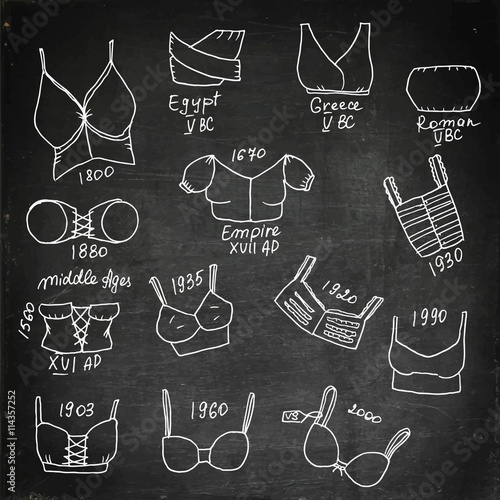 Egypt
V BC
Greece
V BC
Roman
V BC
1800
1670
Empire
XVII AD
1880
1930
middle Ages
1500
XVI AD
1935
1920
1990
1903
1960
VS
2000
Adobe Stock
114357252